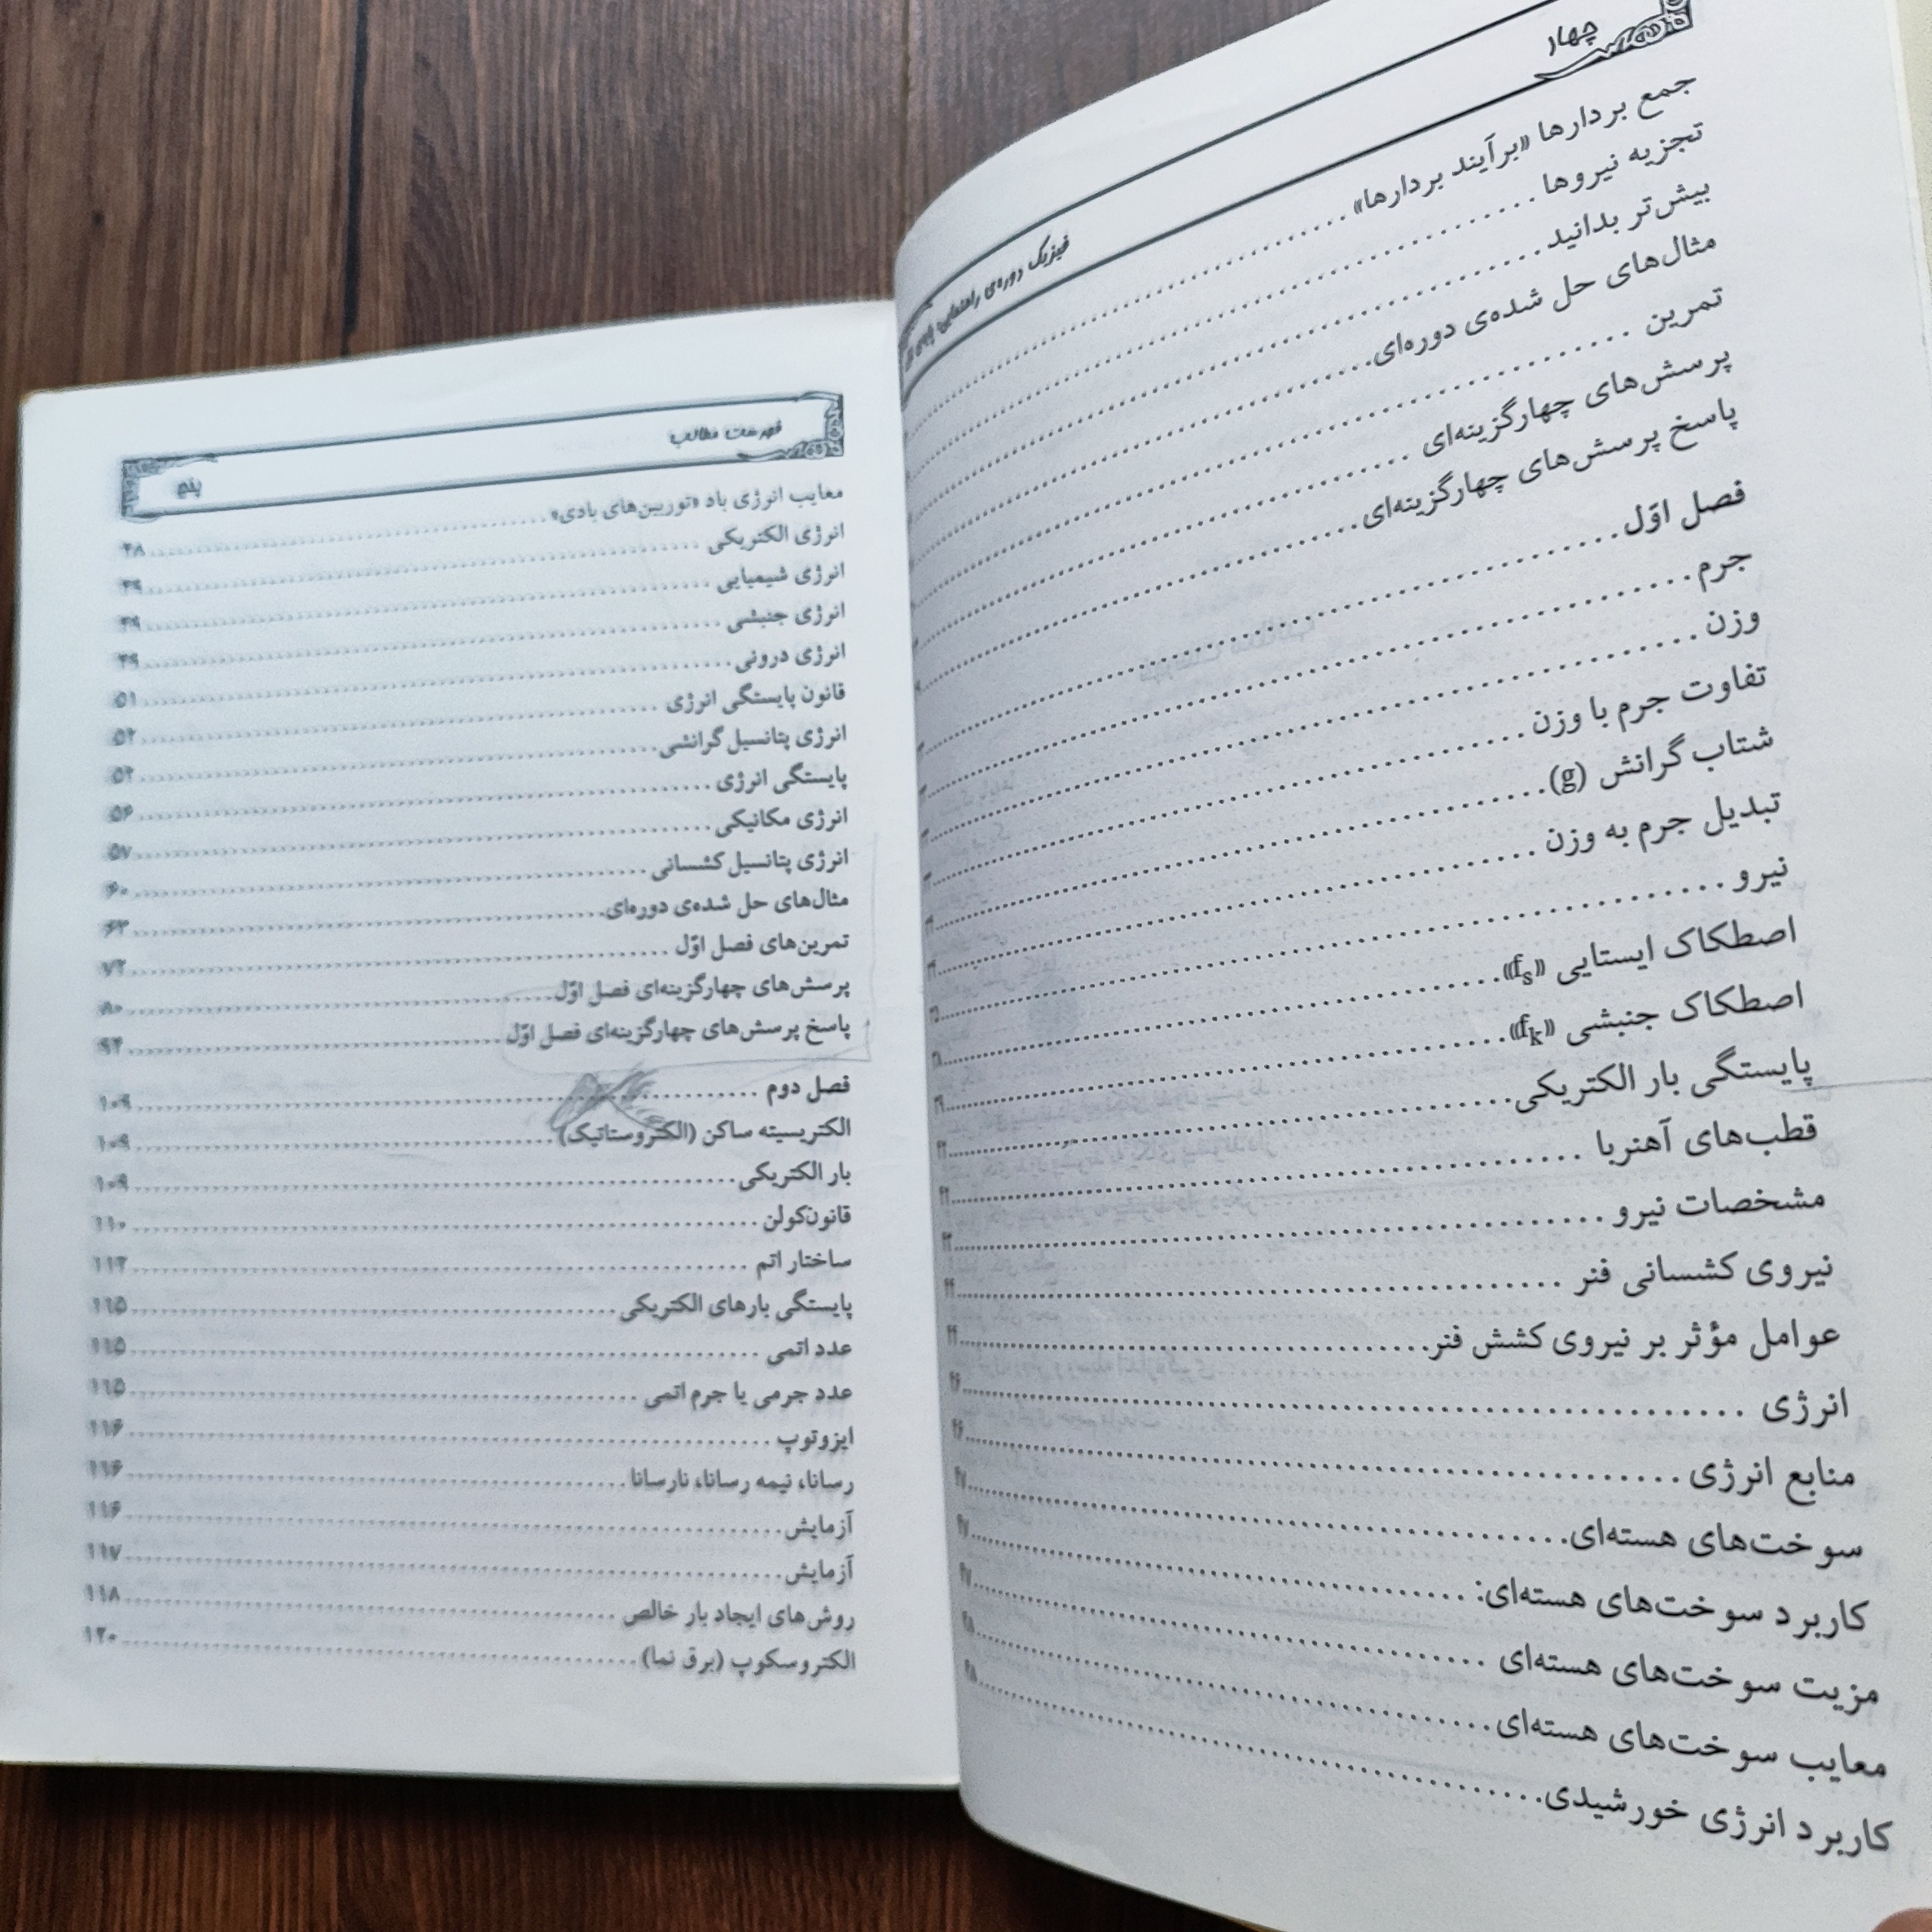 چهار
فیزیک دوره‌ی راهنمایی
جمع بردارها «برآیند بردارها»
تجزیه نیروها
بیش‌تر بدانید
مثال‌های حل شده‌ی دوره‌ای
تمرین
پرسش‌های چهارگزینه‌ای
پاسخ پرسش‌های چهارگزینه‌ای
فصل اوّل
جرم
وزن
تفاوت جرم با وزن
شتاب گرانش (g)
تبدیل جرم به وزن
نیرو
اصطکاک ایستایی «fs»
اصطکاک جنبشی «fk»
پایستگی بار الکتریکی
قطب‌های آهنربا
مشخصات نیرو
نیروی کشسانی فنر
عوامل مؤثر بر نیروی کشش فنر
انرژی
منابع انرژی
سوخت‌های هسته‌ای
کاربرد سوخت‌های هسته‌ای:
مزیت سوخت‌های هسته‌ای
معایب سوخت‌های هسته‌ای
کاربرد انرژی خورشیدی
فهرست مطالب
پنج
معایب انرژی باد «توربین‌های بادی» ۴۸
انرژی الکتریکی ۴۹
انرژی شیمیایی ۴۹
انرژی جنبشی ۴۹
انرژی درونی ۵۱
قانون پایستگی انرژی ۵۲
انرژی پتانسیل گرانشی ۵۲
پایستگی انرژی ۵۶
انرژی مکانیکی ۵۷
انرژی پتانسیل کشسانی ۶۰
مثال‌های حل شده‌ی دوره‌ای ۶۳
تمرین‌های فصل اوّل ۷۲
پرسش‌های چهارگزینه‌ای فصل اوّل ۸۰
پاسخ پرسش‌های چهارگزینه‌ای فصل اوّل ۹۴
فصل دوم ۱۰۹
الکتریسیته ساکن (الکتروستاتیک) ۱۰۹
بار الکتریکی ۱۰۹
قانون‌کولن ۱۱۰
ساختار اتم ۱۱۳
پایستگی بارهای الکتریکی ۱۱۵
عدد اتمی ۱۱۵
عدد جرمی یا جرم اتمی ۱۱۵
ایزوتوپ ۱۱۶
رسانا، نیمه رسانا، نارسانا ۱۱۶
آزمایش ۱۱۶
آزمایش ۱۱۷
روش‌های ایجاد بار خالص ۱۱۸
الکتروسکوپ (برق نما) ۱۲۰